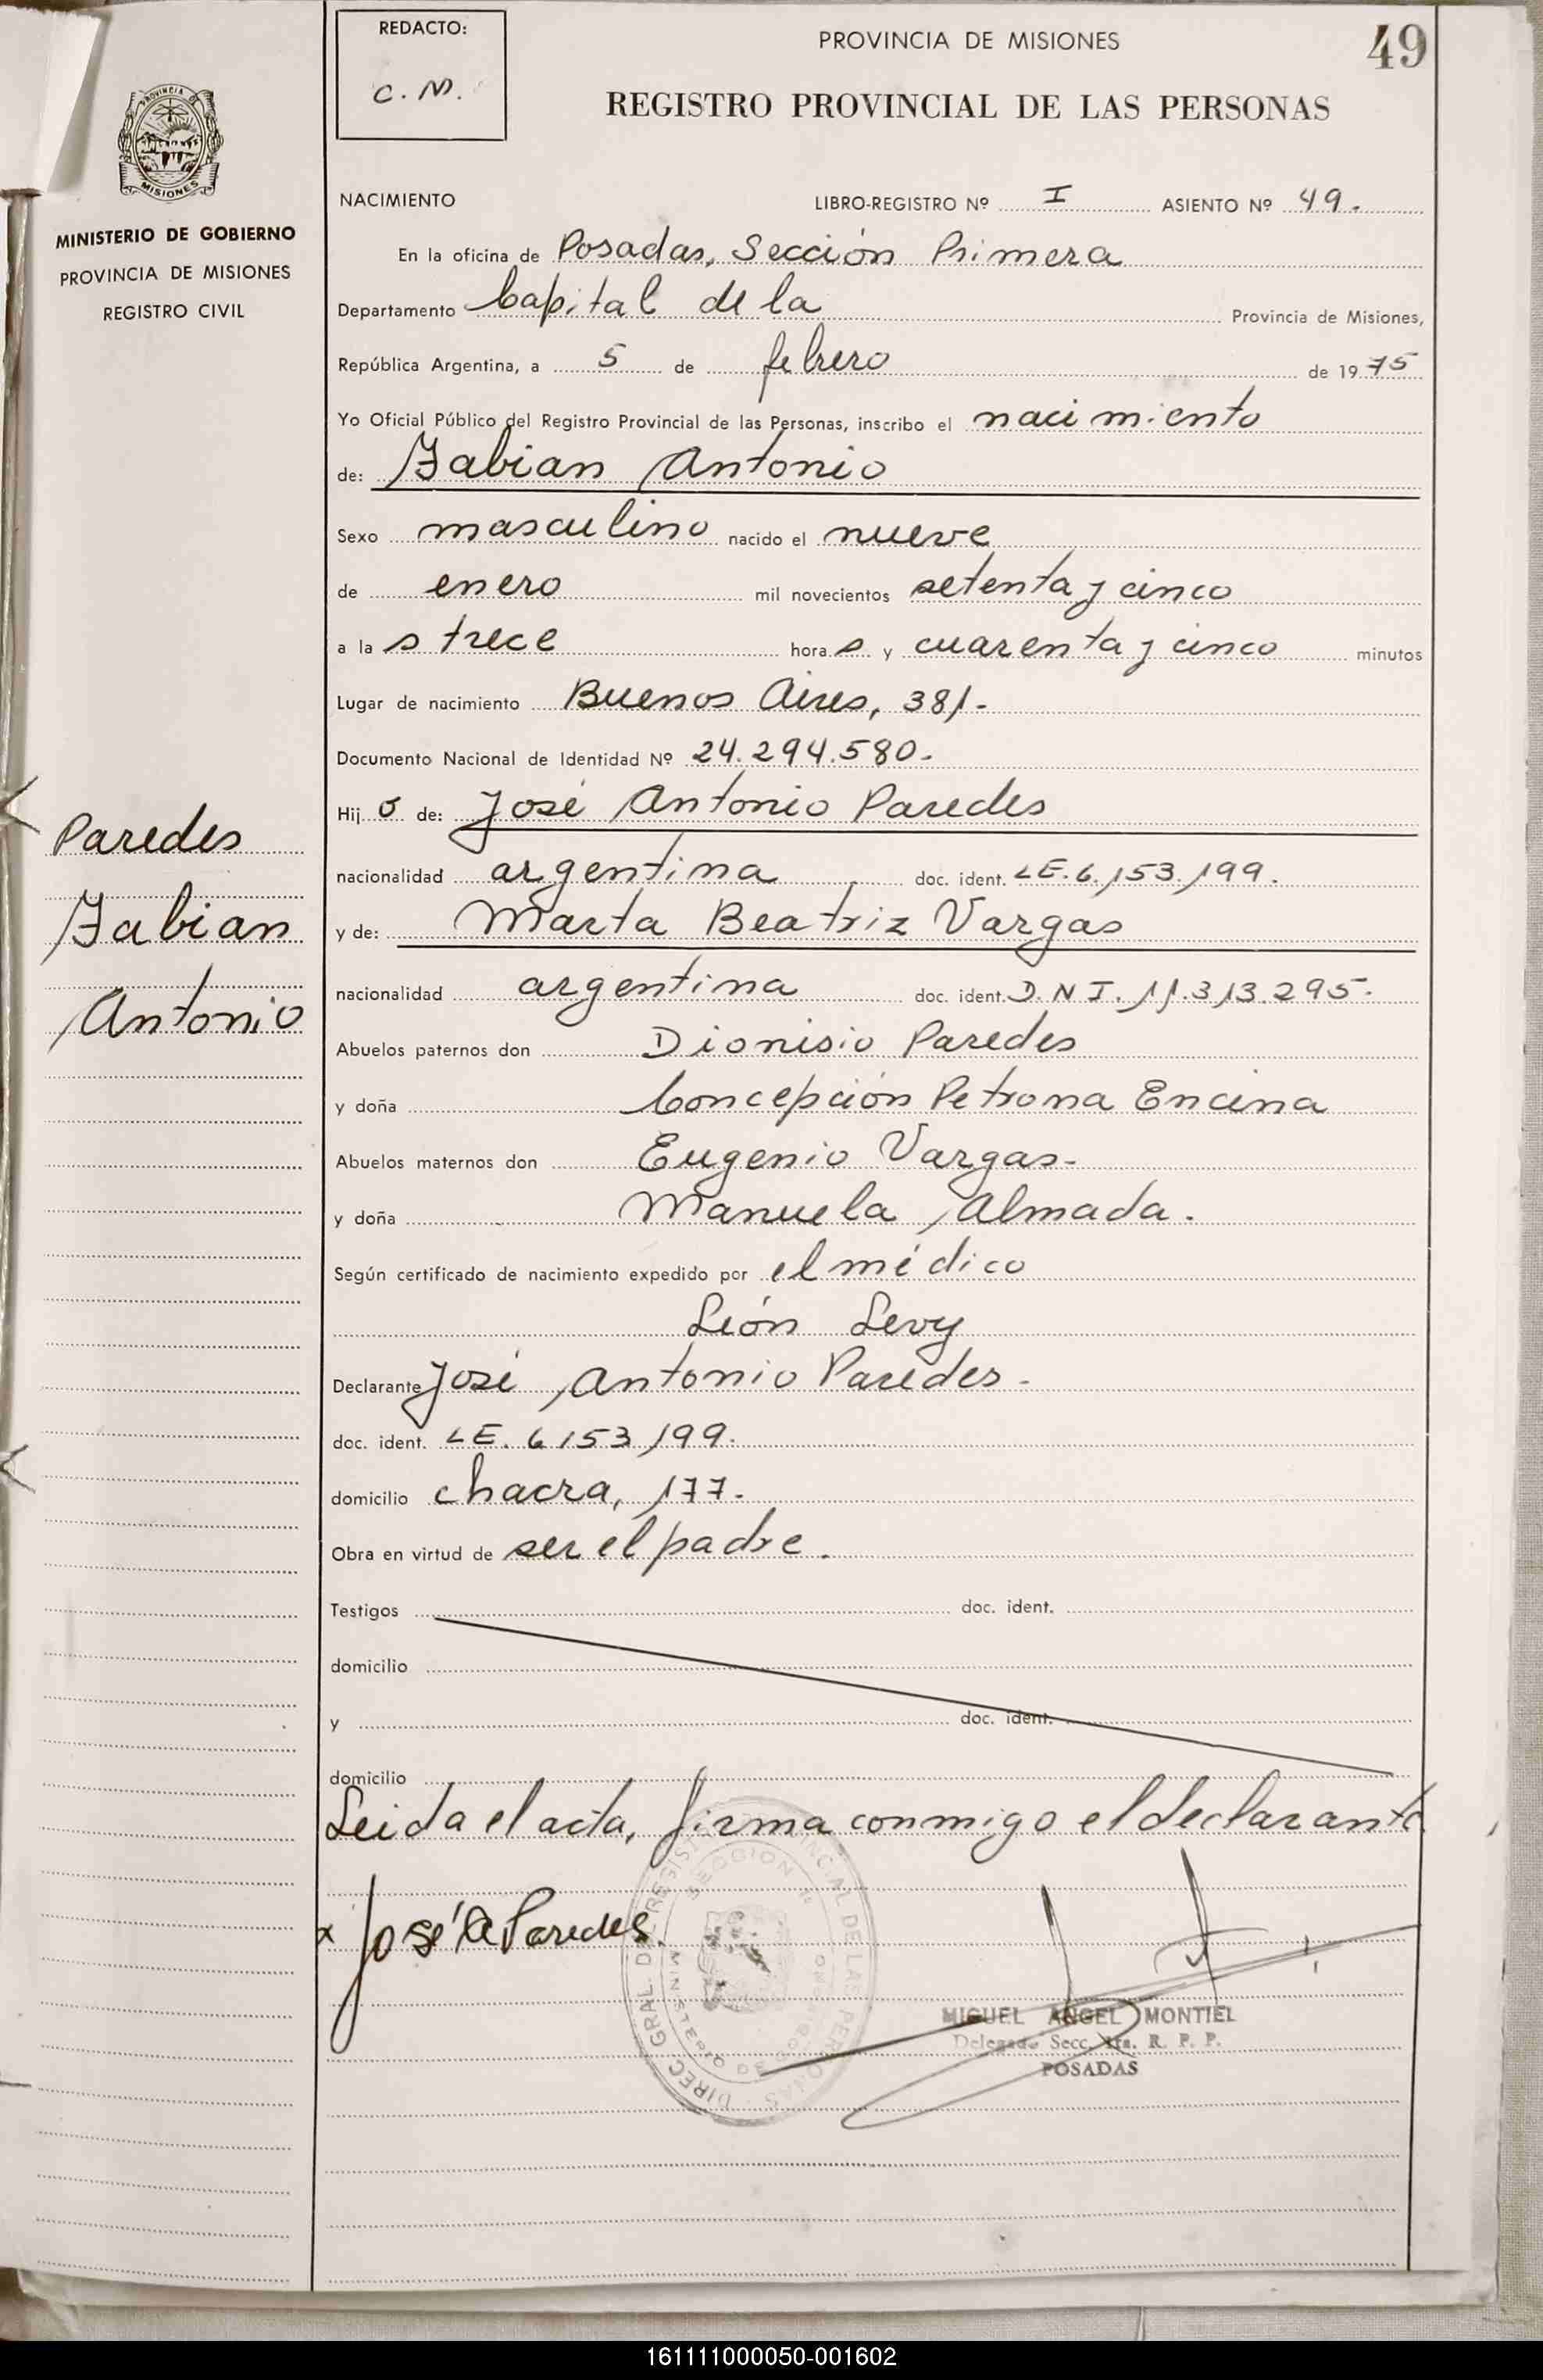 REDACTO:
C. M.
PROVINCIA DE MISIONES
49
REGISTRO PROVINCIAL DE LAS PERSONAS
PROVINCIA
MISIONES
MINISTERIO DE GOBIERNO
PROVINCIA DE MISIONES
REGISTRO CIVIL
NACIMIENTO LIBRO-REGISTRO Nº I ASIENTO Nº 49.
En la oficina de Posadas, Sección Primera
Departamento Capital de la Provincia de Misiones,
República Argentina, a 5 de febrero de 1975
Yo Oficial Público del Registro Provincial de las Personas, inscribo el nacimiento
de: Fabian Antonio
Sexo masculino nacido el nueve
de enero mil novecientos setenta y cinco
a las trece horas y cuarenta y cinco minutos
Lugar de nacimiento Buenos Aires, 381-
Documento Nacional de Identidad Nº 24.294.580.
Hijo de: José Antonio Paredes
nacionalidad argentina doc. ident. LE. 6.153.199.
y de: Marta Beatriz Vargas
nacionalidad argentina doc. ident. D.N I. 11.313.295.
Abuelos paternos don Dionisio Paredes
y doña Concepción Petrona Encina
Abuelos maternos don Eugenio Vargas-
y doña Manuela Almada.
Según certificado de nacimiento expedido por el médico
León Levy
Declarante José Antonio Paredes-
doc. ident. LE. 6153199.
domicilio chacra, 177-
Obra en virtud de ser el padre.
Testigos doc. ident.
domicilio
y doc. ident.
domicilio
Leida el acta, firma conmigo el declarante
Paredes
Fabian
Antonio
x José A Paredes.
DIREC. GRAL. DEL REGISTRO PROVINCIAL DE LAS PERSONAS
SECCION 1ª
MINISTERIO DE GOBIERNO
MIGUEL ANGEL MONTIEL
Delegado Secc. 1ra. R. P. P.
POSADAS
161111000050-001602